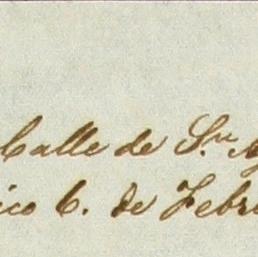 Calle de S.ⁿ
ico 6. de Febr